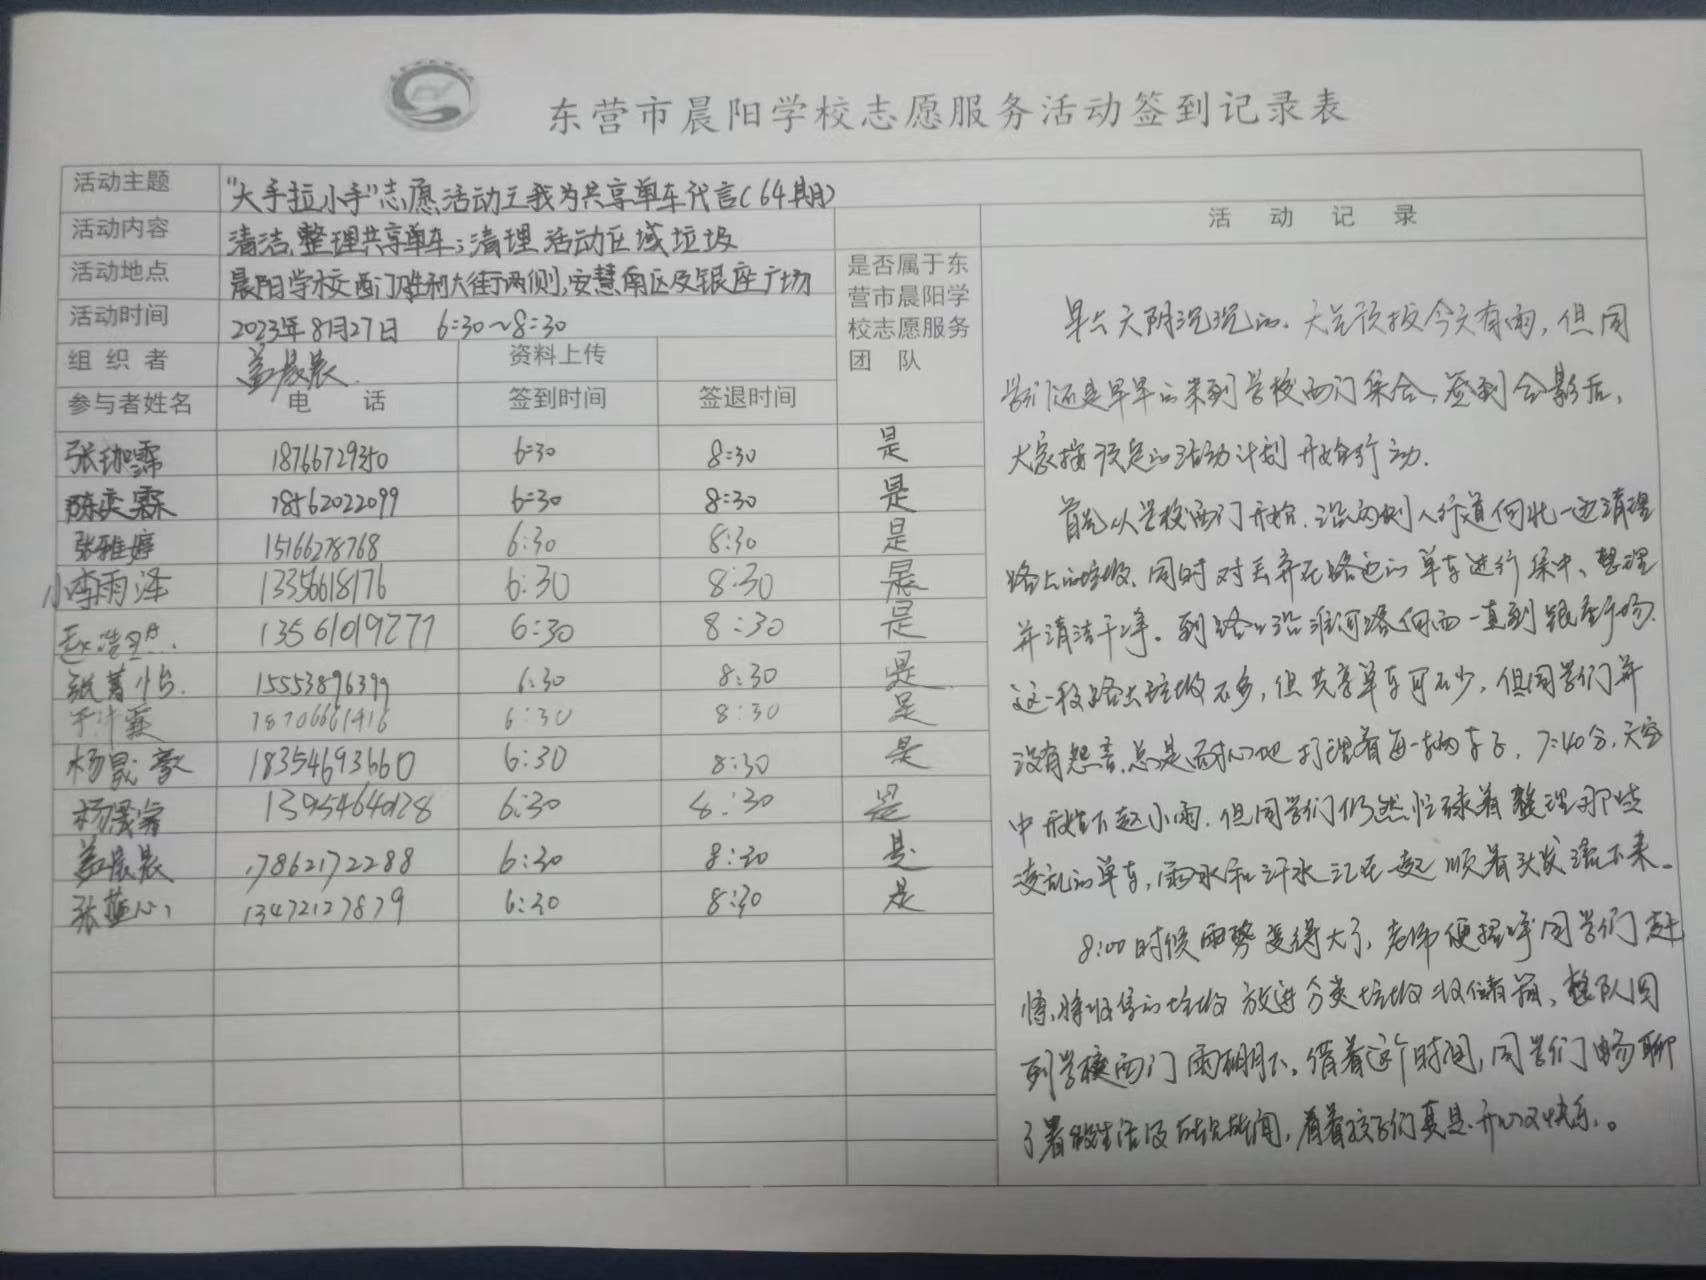 东营市晨阳学校志愿服务活动签到记录表
活动主题 "大手拉小手"志愿活动之我为共享单车代言(64期)
活动内容 清洁、整理共享单车;清理活动区域垃圾
活动地点 晨阳学校西门胜利大街两侧,安慧南区及银座广场
活动时间 2023年8月27日 6:30~8:30
组织者 盖晨晨 资料上传
是否属于东
营市晨阳学
校志愿服务
团 队
参与者姓名 电 话 签到时间 签退时间
张珈霈 18766729350 6:30 8:30 是
陈奕霖 18562022099 6:30 8:30 是
张雅婷 15166278768 6:30 8:30 是
李雨泽 13356618176 6:30 8:30 是
13561019277 6:30 8:30 是
15553896399 6:30 8:30 是
18706661416 6:30 8:30 是
杨晟豪 18354693660 6:30 8:30 是
6:30 8:30 是
盖晨晨 17862172288 6:30 8:30 是
张蕴心 13472127879 6:30 8:30 是
活 动 记 录
早上天阴沉沉的,天气预报今天有雨,但同
学们还是早早的来到学校西门集合,签到合影后,
大家按预定的活动计划开始行动.
首先从学校西门开始,沿两侧人行道向北一边清理
路上的垃圾,同时对丢弃在路边的单车进行集中、整理
并清洁干净。到路口沿淮河路向西一直到银座广场.
这一段路上垃圾不多,但共享单车可不少,但同学们并
没有怨言,总是耐心地打理着每一辆车子,7:40分,天空
中开始下起小雨,但同学们仍然忙碌着整理那些
凌乱的单车,雨水和汗水汇在一起顺着头发流下来.
8:00时候雨势变得大了,老师便招呼同学们赶
将收集的垃圾放进分类垃圾收储箱,整队回
到学校西门雨棚下,借着这个时间,同学们畅聊
了暑假生活及所见所闻,看着孩子们真是开心又快乐。